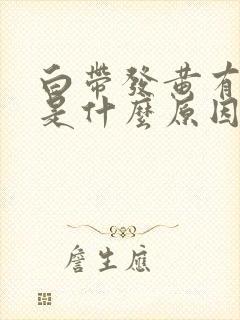 白帶發黃有
是什麼原因
詹生應